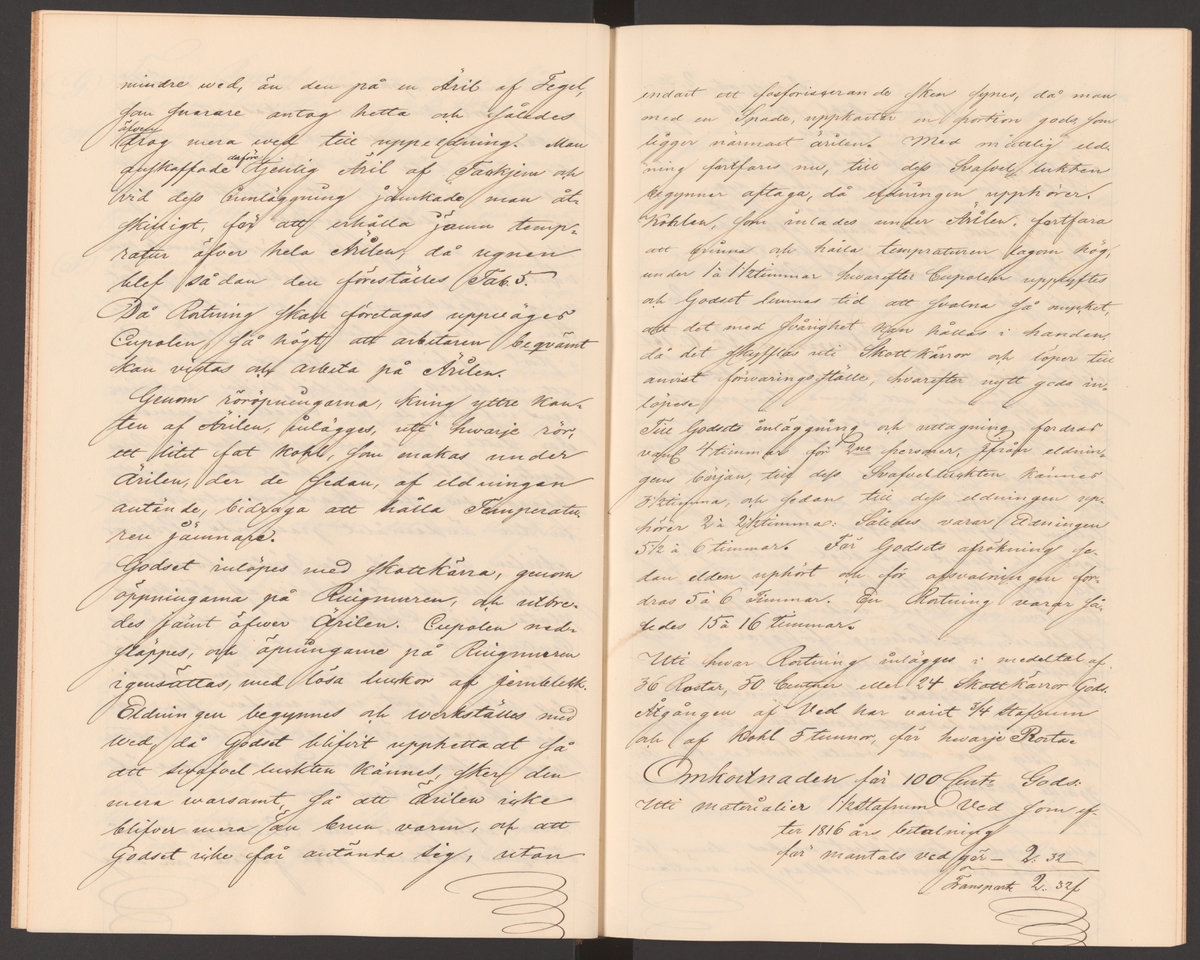 mindre wed, än den på en Äril af Tegel,
som snarare antog hetta och således
äfven
drog mera wed till uppeldning. Man
derföre
anskaffade tjenlig Äril af Taskjern och
vid dess inläggning jämkade man åt-
skilligt, för att erhålla jämn temp-
ratur äfver hela Årilen, då ugnen
blef sådan den föreställes Tab. 5.
Då Rostning skall företagas uppväges
Cupolen så högt, att arbetaren beqvämt
kan vistas och arbeta på Ärilen.
Genom röröpningarna, kring yttre kan-
ten af Ärilen, inlägges, uti hwarje rör,
ett litet fat kohl, som makas under
Ärilen, der de sedan, af eldningen
antände, bidraga att hålla Temperatu-
ren jämnare.
Godset inlöpes med skottkärra, genom
öppningarna på Ringmuren, och utbre-
des jämt öfwer Ärilen. Cupolen ned-
släppes, och öpningarne på Ringmuren
igensättas, med lösa luckor af jernbleck.
Eldningen begynnes och werkställes med
wed, då Godset blifvit upphettadt så
att swafvel lukten kännes, sker den
mera warsamt, så att Ärilen icke
blifver mera än brun varm, och att
Godset icke får antända sig, utan
endast ett fosforiserande sken synes, då man
med en Spade, uppkastar en portion gods som
ligger närmast ärilen. Med måttlig eld-
ning fortfares nu, till dess Svafvel lukten
begynner aftaga, då eldningen upphörer.
Kohlen, som inlades under Ärilen, fortfara
att brinna och hålla tempraturen lagom hög,
under 1 à 1½ timmar hwarefter Cupolen upplyftes
och Godset lemnas tid att svalna så mycket,
att det med svårighet kan hållas i handen,
då det skyfflas uti Skottkärror och löper till
anvist förvaringsställe, hvarefter nytt gods in-
löpes.
Till Godsets inläggning och uttagning fordras
vanl. 4 timmar för 2ne personer, Ifrån eldnin-
gens början, till dess Svafvel lukten kännes
3½ timma, och sedan till dess eldningen up-
hörer 2 à 2½ timma: Således varar Eldningen
5½ à 6 timmar. För Godsets afrökning se-
dan elden uphört och för afsvalningen for-
dras 5 à 6 timmar. En Rostning varar så-
ledes 15 à 16 timmar.
Uti hwar Rostning inlägges i medeltal af
36 Rostar, 50 Centner eller 24 Skottkärror Gods.
Åtgången af Ved har varit ¾ stafrum
och af Kohl 5 tunnor, för hwarje Rosta.
Omkostnaden för 100 Cent. Gods.
Uti materialier 1½ stafrum Ved som ef-
ter 1816 års betalning
för mantals ved gör — 2. 32
Transport 2. 32